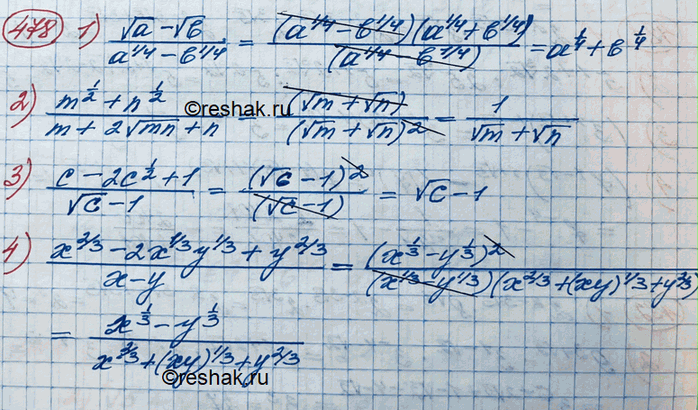 478 1) (√a - √b)/(a^{1/4} - b^{1/4}) = ((a^{1/4} - b^{1/4})(a^{1/4} + b^{1/4}))/((a^{1/4} - b^{1/4})) = a^{1/4} + b^{1/4}
2) (m^{1/2} + n^{1/2})/(m + 2√mn + n) = (√m + √n)/(√m + √n)^2 = 1/(√m + √n)
©reshak.ru
3) (c - 2c^{1/2} + 1)/(√c - 1) = (√c - 1)^2/(√c - 1) = √c - 1
4) (x^{2/3} - 2x^{1/3}y^{1/3} + y^{2/3})/(x - y) = (x^{1/3} - y^{1/3})^2/((x^{1/3} - y^{1/3})(x^{2/3} + (xy)^{1/3} + y^{2/3}))
= (x^{1/3} - y^{1/3})/(x^{2/3} + (xy)^{1/3} + y^{2/3})
©reshak.ru